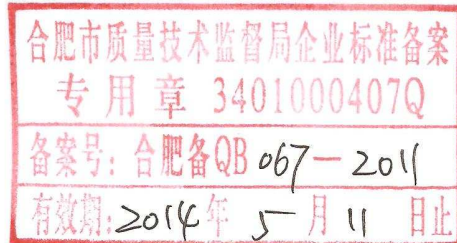 合肥市质量技术监督局企业标准备案
专用章 3401000407Q
备案号: 合肥备QB 067-2011
有效期: 2014年 5月 11日止